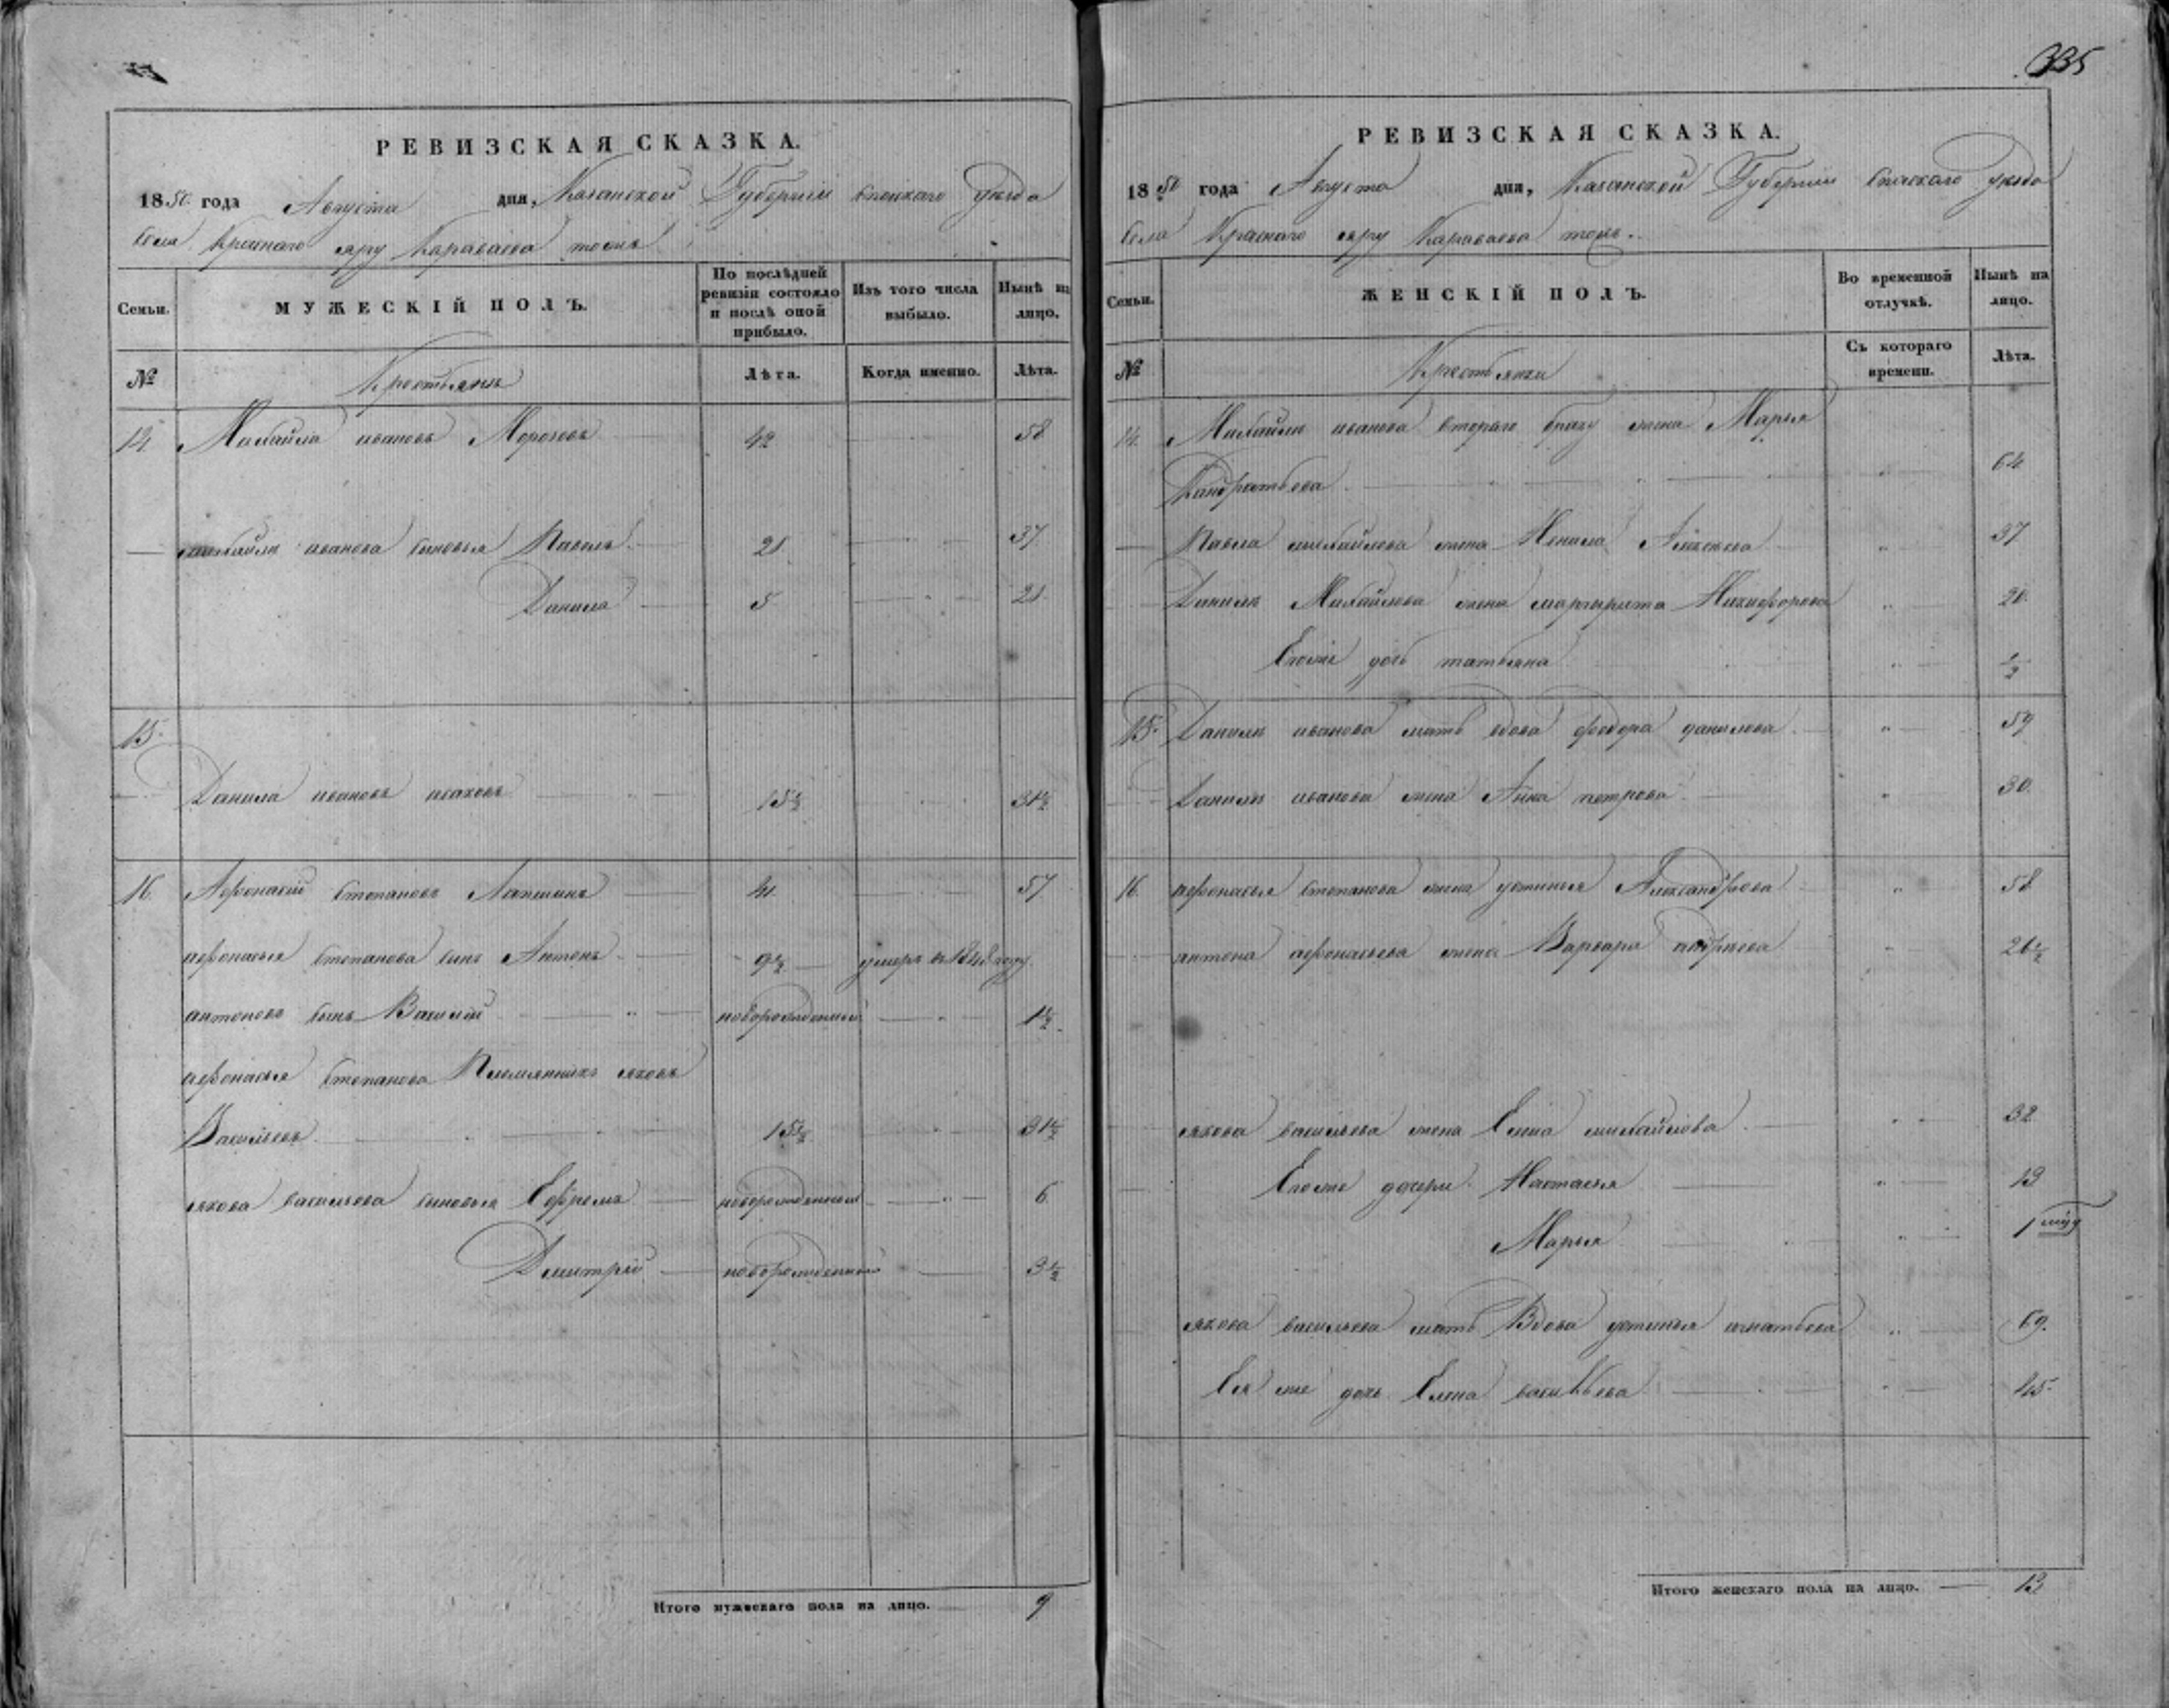 335
РЕВИЗСКАЯ СКАЗКА.
1850 года Августа дня, Казанской Губернии Спаскаго уѣзда
села Краснаго яру Караваева тожъ
Семьи. МУЖЕСКІЙ ПОЛЪ. По послѣдней ревизіи состояло и послѣ оной прибыло. Изъ того числа выбыло. Нынѣ на лицо.
№ Крестьянъ Лѣта. Когда именно. Лѣта.
14 Михайла ивановъ Морозовъ 42 58
михайлы иванова сыновья Павелъ 21 37
Данила 5 21
15.
Данила ивановъ исаковъ 15½ 31½
16. Афонасій степановъ Лапшинъ 41 57
афонасья степанова сынъ Антонъ 9½ умеръ в 1848 году
антоновъ сынъ Василій новорожденный 1½
афонасья степанова Племянникъ яковъ
Васильевъ 15½ 31½
якова васильева сыновья Ефремъ новорожденный 6
Дмитрій новорожденный 3½
Итого мужескаго пола на лицо. 9
РЕВИЗСКАЯ СКАЗКА.
1850 года Августа дня, Казанской Губернии Спаскаго уѣзда
села Краснаго яру Караваева тожъ.
Семьи. ЖЕНСКІЙ ПОЛЪ. Во временной отлучкѣ. Нынѣ на лицо.
№ Крестьянки Съ котораго времени. Лѣта.
14. Михайлы иванова втораго браку жена Марья
Кандратьева 64
Павла михайлова жена Ненила Алексеева 37
Данилы Михайлова жена маргарита Никифорова 20
Ево же дочь татьяна ½
15. Данилы иванова мать вдова федора данилова 59
Данилы иванова жена Анна петрова 30.
16 афонасья степанова жена устинья Александрова 58
антона афонасьева жена Варвара андреева 26½
якова васильева жена Елена михайлова 32
Ево же дочери Настасья 13
Марья 1
якова васильева мать Вдова устинья игнатьева 69.
Ея же дочь Елена васильева 45
Итого женскаго пола на лицо. 13